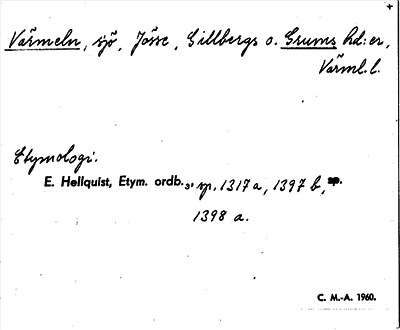 +
Värmeln, sjö, Jösse, Gillbergs o. Grums hd:er,
Värml. l.
Etymologi.
E. Hellquist, Etym. ordb.3, sp. 1317 a, 1397 b, sp.
1398 a.
C. M.-A. 1960.